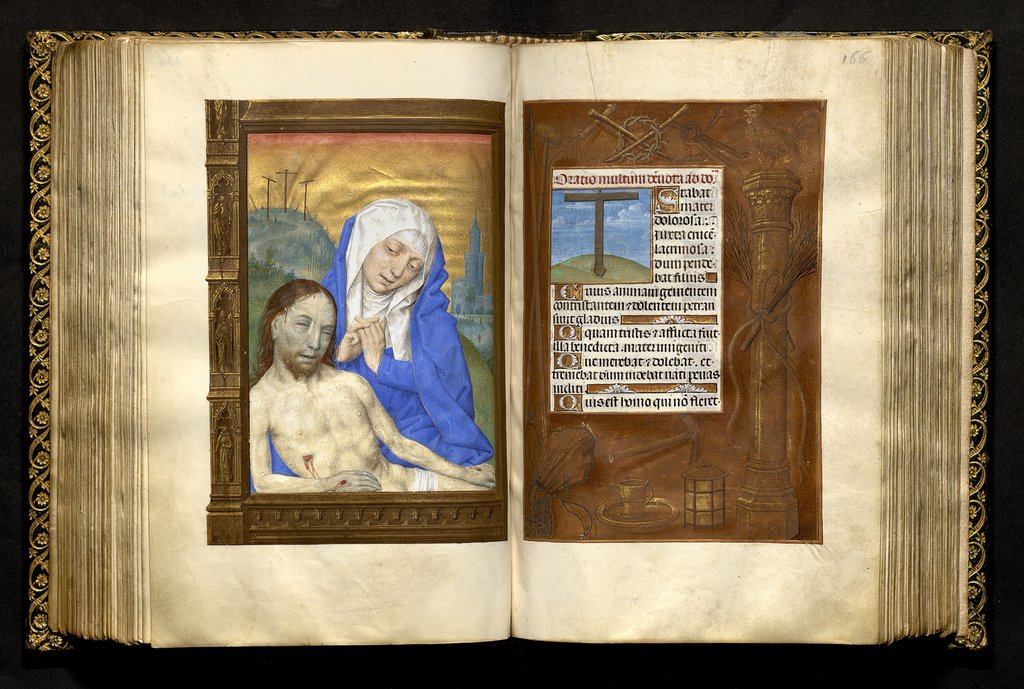 166
Oratio multum devota ad do
Stabat
mater
dolorosa
iuxta cruce
lacrimosa
dum pende
bat filius
Cuius animam gementem
contristantem et dolentem pertran
sivit gladius
O quam tristis et afflicta fuit
illa benedicta mater unigeniti
Que merebat et dolebat et
tremebat dum videbat nati penas
incliti
Quis est homo qui nō fleret